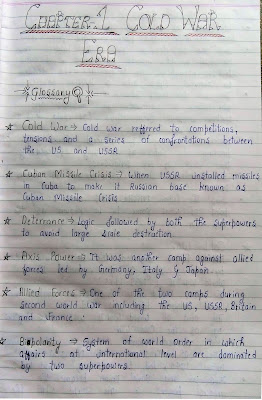 CHAPTER-1 COLD WAR
ERA
Glossary
★ Cold War → Cold war referred to competitions,
tensions and a series of confrontations between
the US and USSR
★ Cuban Missile Crisis → When USSR installed missiles
in Cuba to make it Russian base known as
Cuban Missile Crisis
★ Deterrence → Logic followed by both the superpowers
to avoid large scale destruction
★ Axis Power → It was another camp against allied
forces led by Germany, Italy & Japan.
★ Allied Forces → One of the two camps during
second world war including the US, USSR, Britain
and France
★ Bipolarity → System of world order in which
affairs at international level are dominated
by two superpowers.